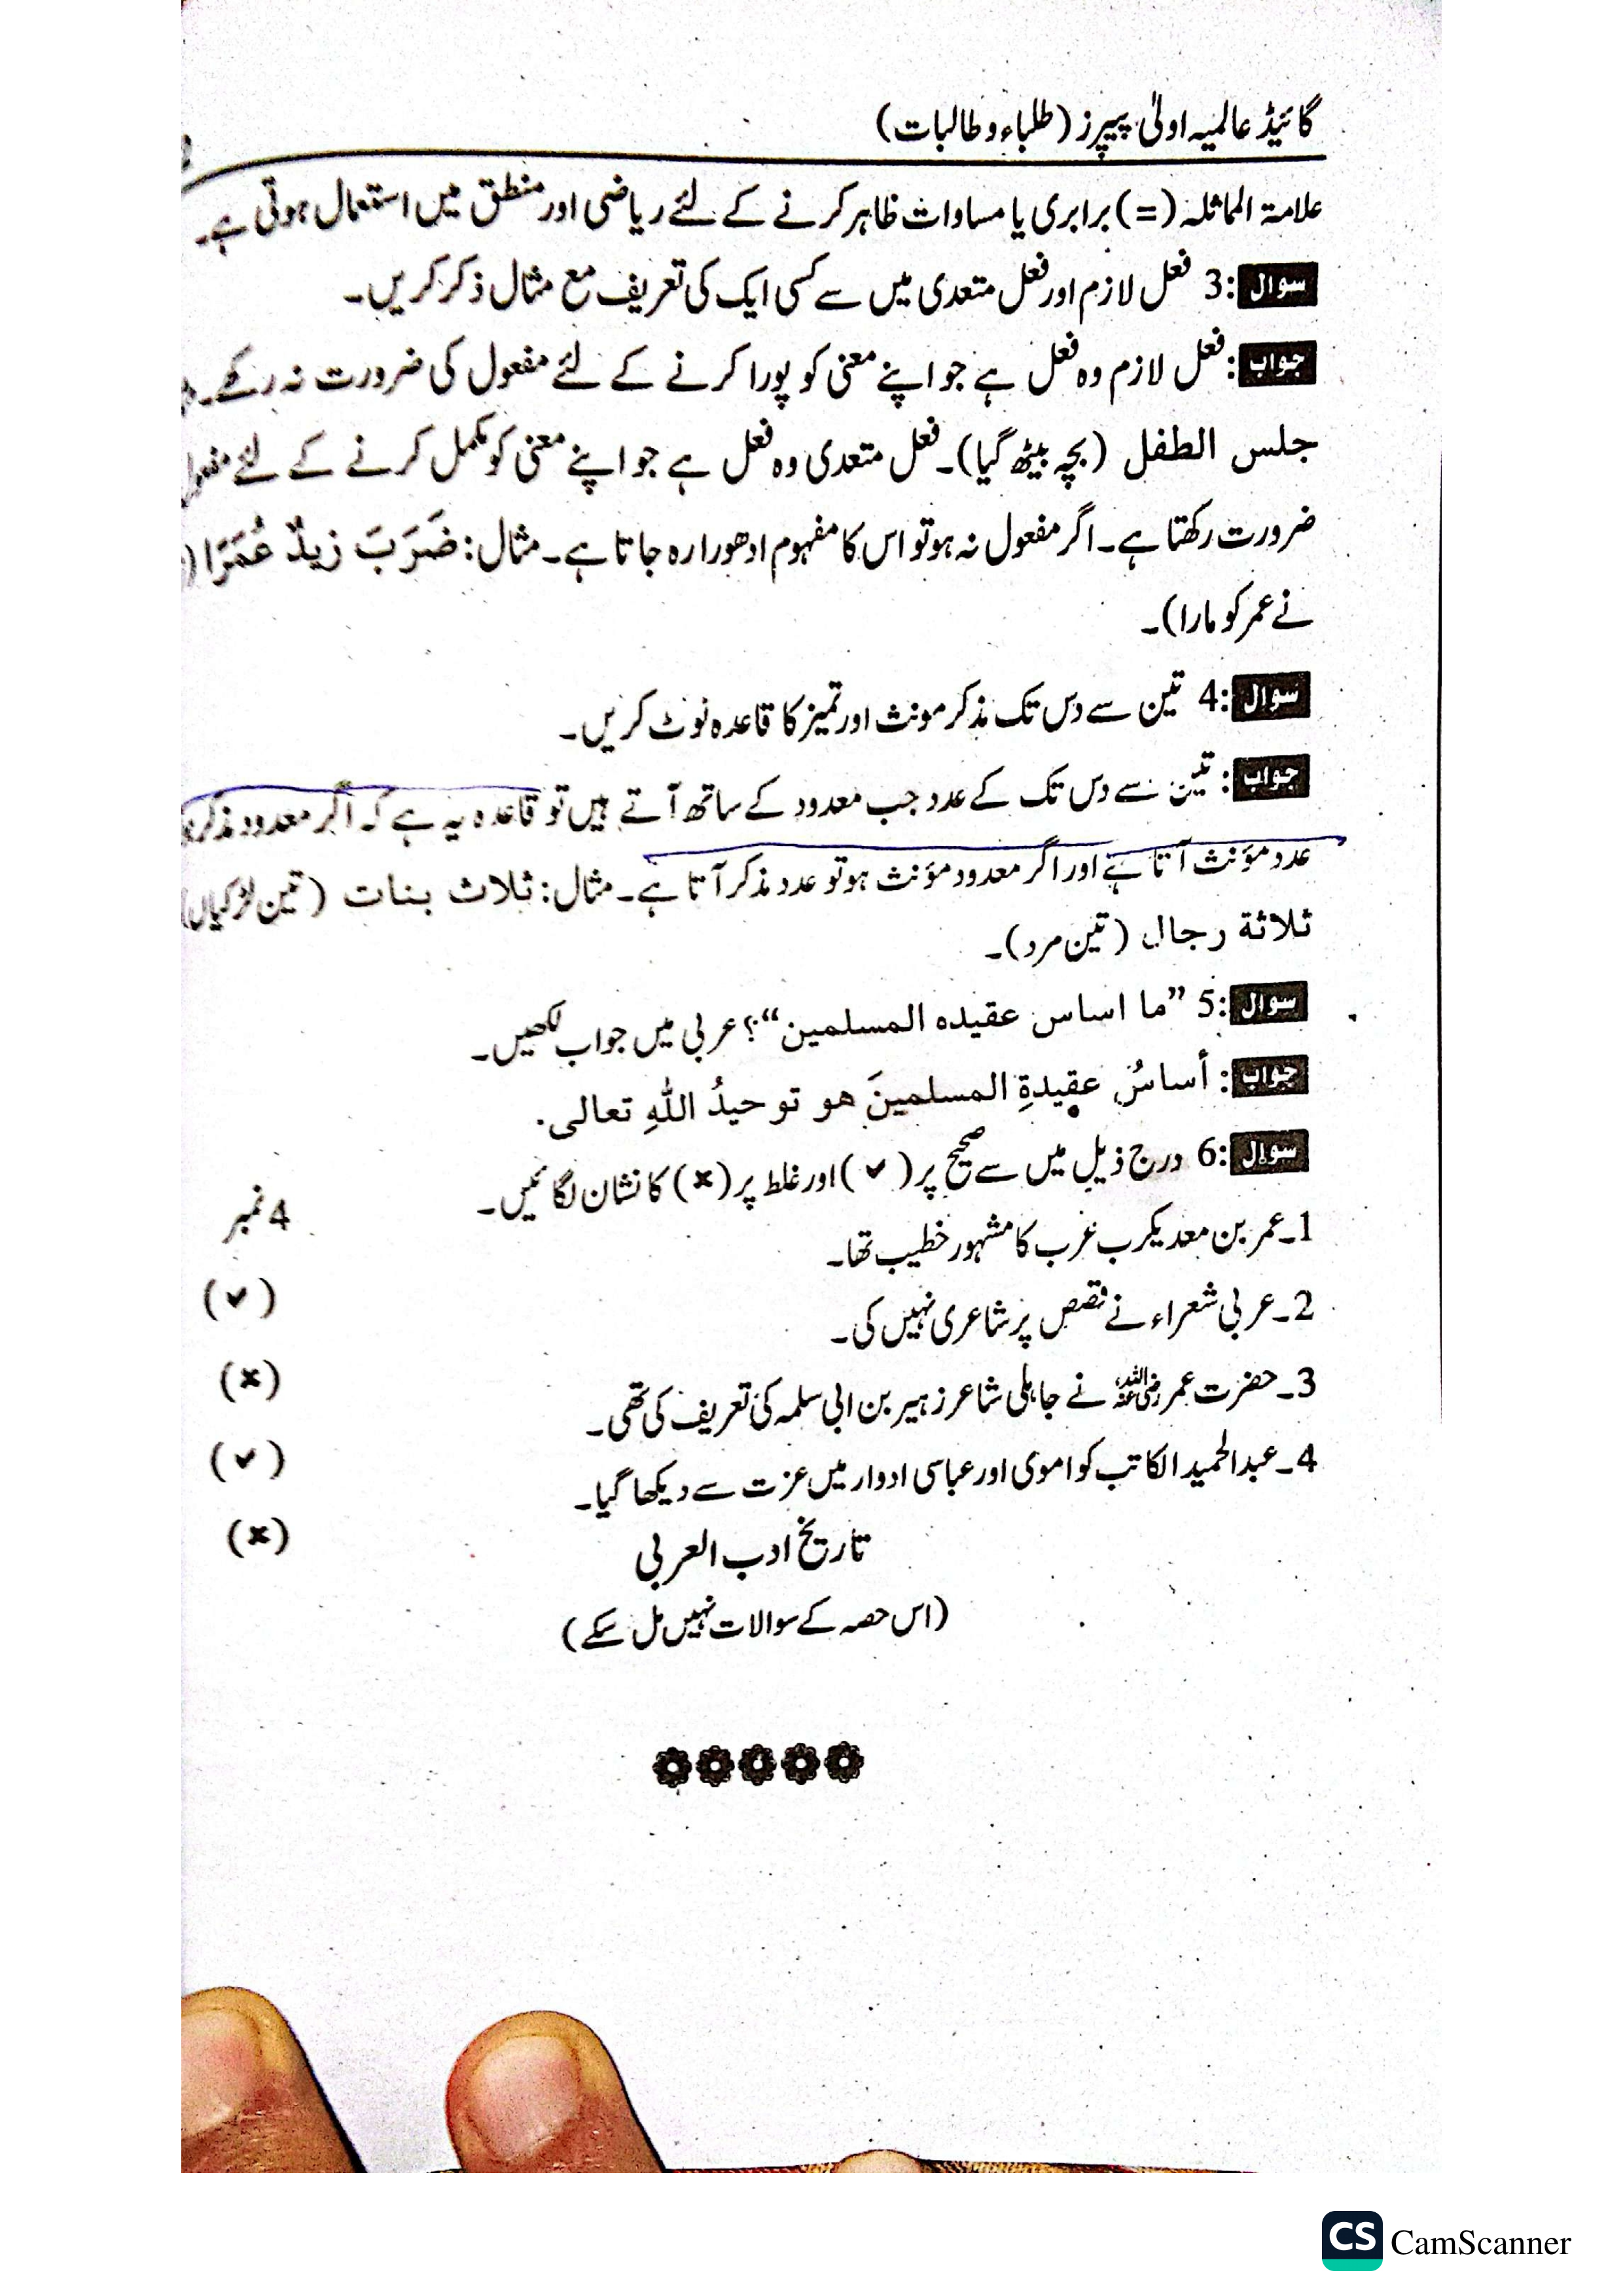 گائیڈ عالمیہ اولیٰ پیپرز (طلباء و طالبات)
علامۃ المماثلہ (=) برابری یا مساوات ظاہر کرنے کے لئے ریاضی اور منطق میں استعمال ہوتی ہے۔
سوال 3: فعل لازم اور فعل متعدی میں سے کسی ایک کی تعریف مع مثال ذکر کریں۔
جواب: فعل لازم وہ فعل ہے جو اپنے معنی کو پورا کرنے کے لئے مفعول کی ضرورت نہ رکھے۔
جلس الطفل (بچہ بیٹھ گیا)۔ فعل متعدی وہ فعل ہے جو اپنے معنی کو مکمل کرنے کے لئے مفعول
ضرورت رکھتا ہے۔ اگر مفعول نہ ہو تو اس کا مفہوم ادھورا رہ جاتا ہے۔ مثال: ضَرَبَ زیدٌ عُمَرًا (
نے عمر کو مارا)۔
سوال 4: تین سے دس تک مذکر مونث اور تمیز کا قاعدہ نوٹ کریں۔
جواب: تین سے دس تک کے عدد جب معدود کے ساتھ آتے ہیں تو قاعدہ یہ ہے کہ اگر معدود مذکر
عدد مؤنث آتا ہے اور اگر معدود مؤنث ہو تو عدد مذکر آتا ہے۔ مثال: ثلاث بنات (تین لڑکیاں)
ثلاثة رجال (تین مرد)۔
سوال 5: ”ما اساس عقیدہ المسلمین“؟ عربی میں جواب لکھیں۔
جواب: أساسُ عقیدةِ المسلمینَ هو توحیدُ اللهِ تعالی.
سوال 6: درج ذیل میں سے صحیح پر (✔) اور غلط پر (✖) کا نشان لگائیں۔
4 نمبر
1۔ عمر بن معدیکرب عرب کا مشہور خطیب تھا۔ (✔)
2۔ عربی شعراء نے قصص پر شاعری نہیں کی۔ (✖)
3۔ حضرت عمر رضی اللہ عنہ نے جاہلی شاعر زہیر بن ابی سلمہ کی تعریف کی تھی۔ (✔)
4۔ عبدالحمید الکاتب کو اموی اور عباسی ادوار میں عزت سے دیکھا گیا۔ (✖)
تاریخ ادب العربی
(اس حصہ کے سوالات نہیں مل سکے)
CS CamScanner